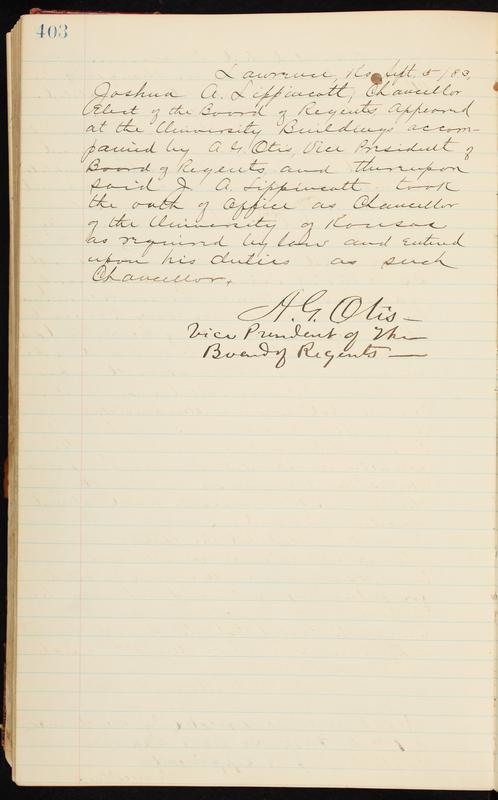 403
Lawrence, Ks. Sept. 5/83,
Joshua A. Lippincott, Chancellor
Elect of the Board of Regents appeared
at the University Buildings accom-
panied by A G Otis, Vice President of
Board of Regents and thereupon
said J. A. Lippincott took
the oath of Office as Chancellor
of the University of Kansas
as required by law and entered
upon his duties as such
Chancellor.
A. G. Otis—
Vice President of the
Board of Regents—